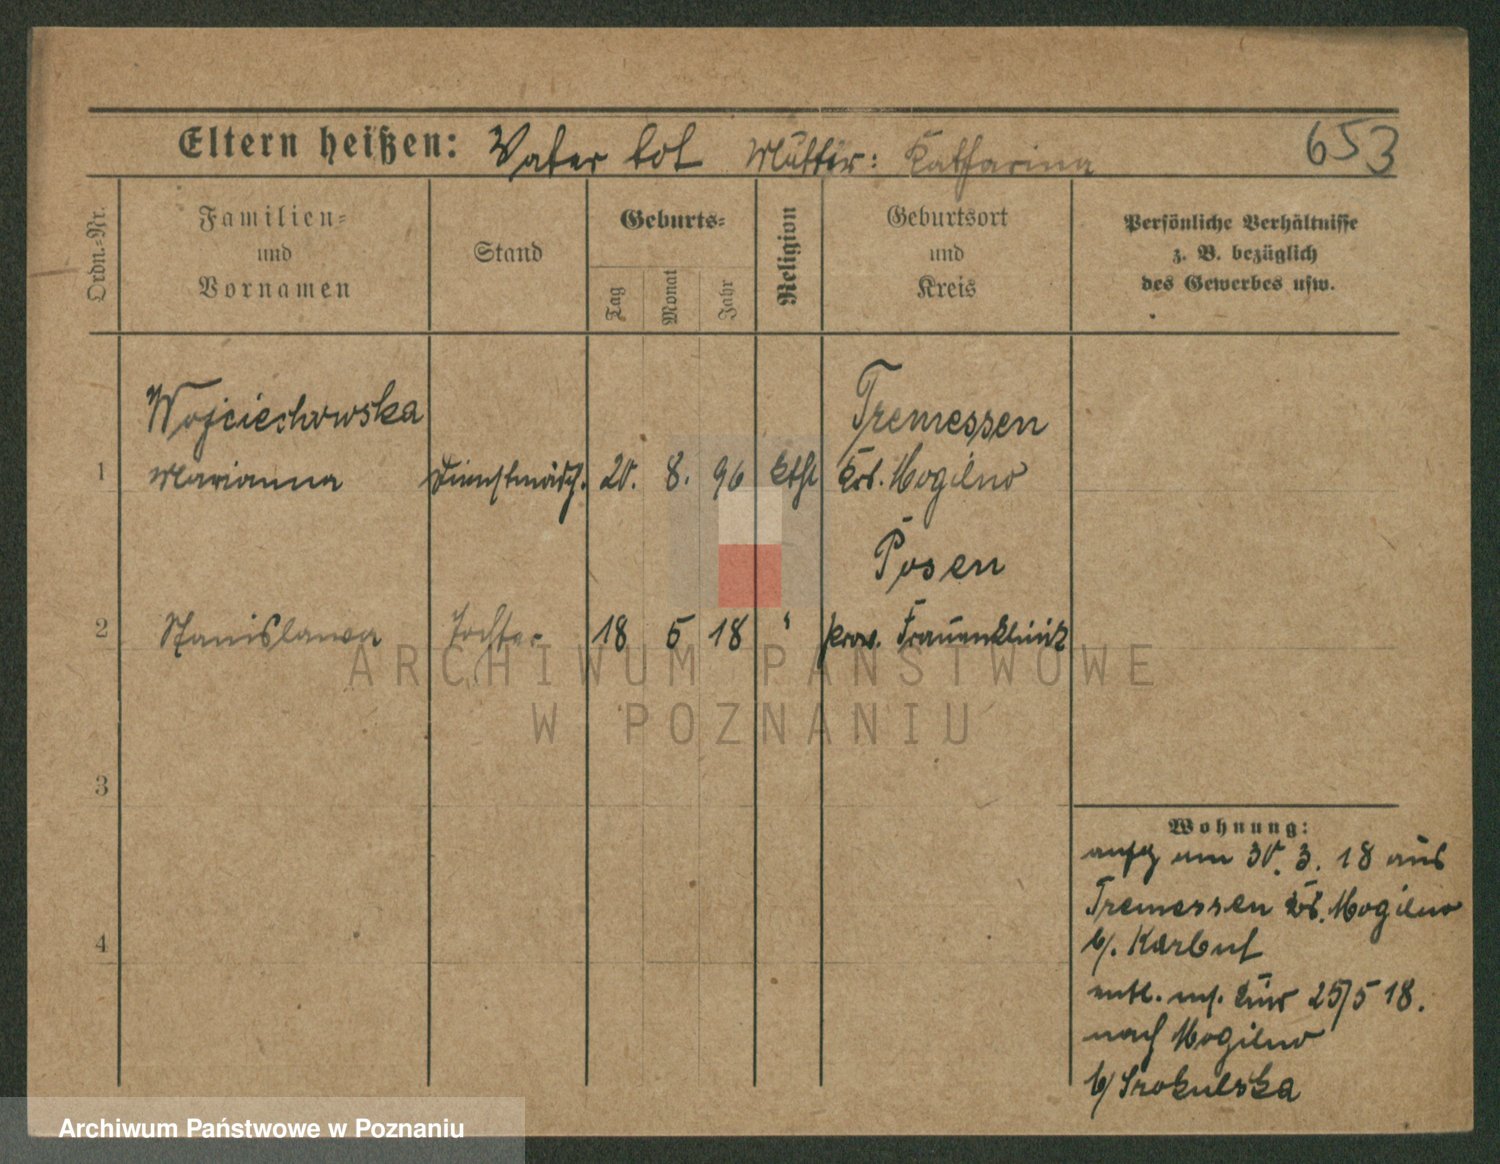 Eltern heißen: Vater tot Mutter: Katharina 653
Ordn.=Nr.
Familien=
und
Vornamen
Stand
Geburts=
Tag
Monat
Jahr
Religion
Geburtsort
und
Kreis
Persönliche Verhältnisse
z. B. bezüglich
des Gewerbes usw.
Wojciechowska Tremessen
1 Marianna Dienstmädch. 20. 8. 96 kthl Krs. Mogilno
Posen
2 Stanislawa Tochter 18 5 18 " prov. Frauenklinik
ARCHIWUM PAŃSTWOWE
W POZNANIU
3
4
Wohnung:
am 30. 3. 18 aus
Tremessen Krs. Mogilno
b/. Karbut
entl. 25/5 18.
nach Mogilno
b/ Srokulska
Archiwum Państwowe w Poznaniu